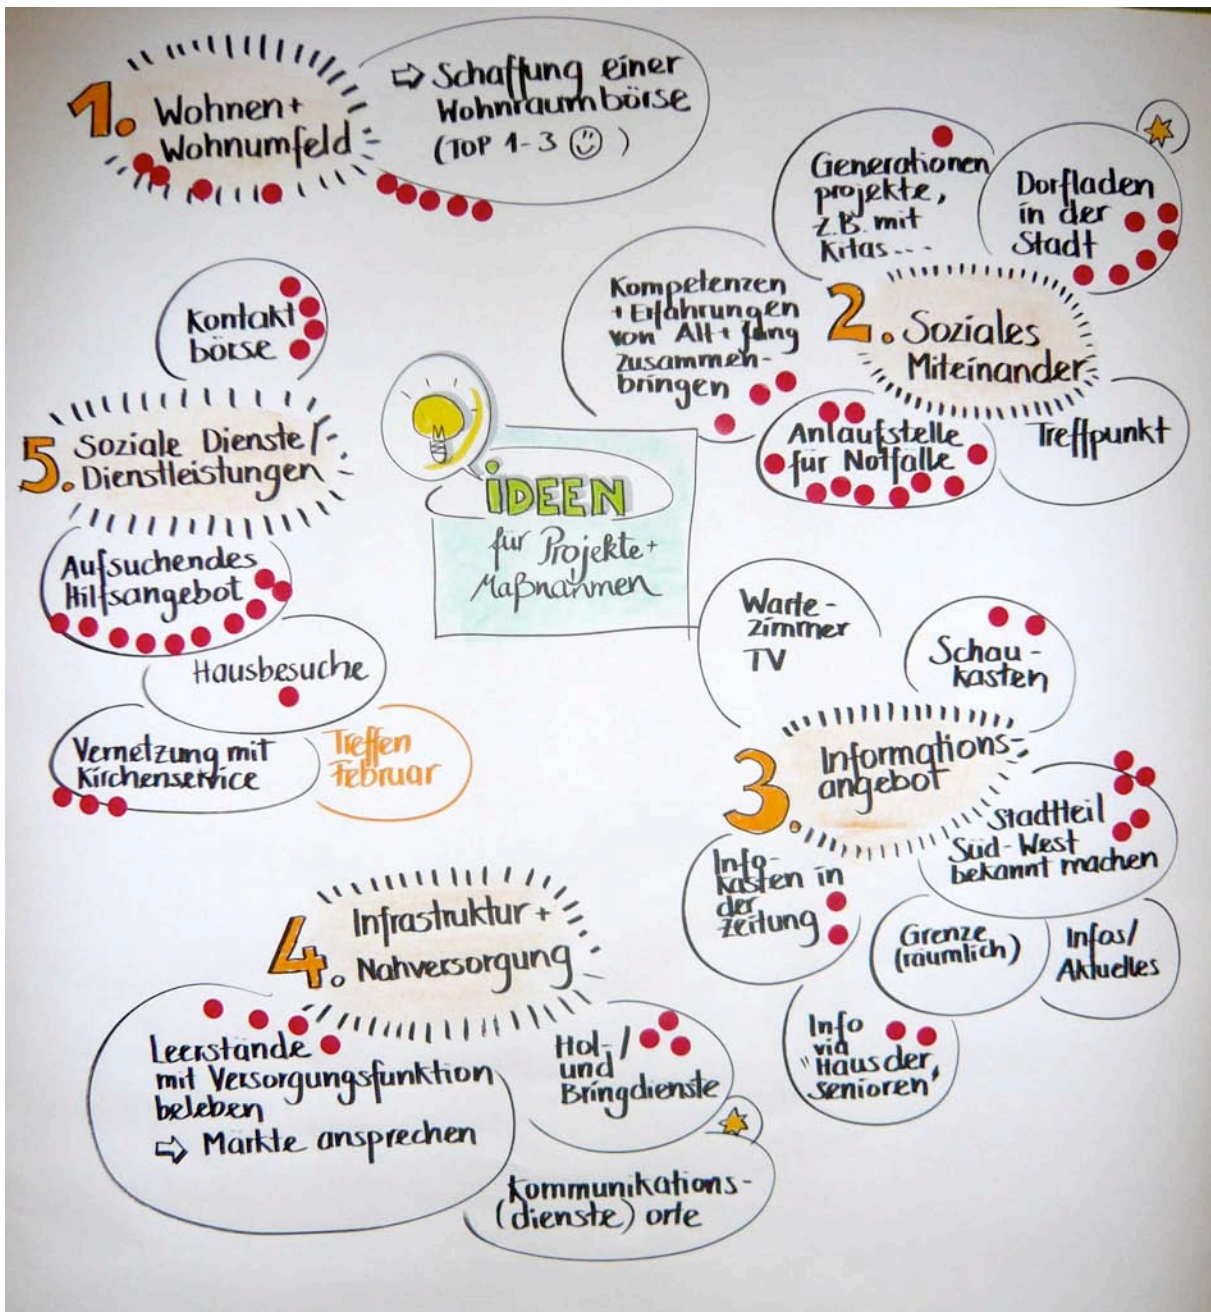 1. Wohnen +
Wohnumfeld
⇨ Schaffung einer
Wohnraumbörse
(TOP 1-3 ☺)
Generationen
projekte,
z.B. mit
Kitas...
Dorfladen
in der
Stadt
Kompetenzen
+ Erfahrungen
von Alt + Jung
zusammen-
bringen
2. Soziales
Miteinander
Anlaufstelle
für Notfälle
Treffpunkt
Kontakt
börse
5. Soziale Dienste/
Dienstleistungen
IDEEN
für Projekte +
Maßnahmen
Aufsuchendes
Hilfsangebot
Hausbesuche
Vernetzung mit
Kirchenservice
Treffen
Februar
Warte-
zimmer
TV
Schau-
kasten
3. Informations-
angebot
Stadtteil
Süd-West
bekannt machen
Info-
kasten in
der
Zeitung
Grenze
(räumlich)
Infos/
Aktuelles
Info
via
"Haus der
Senioren"
4. Infrastruktur +
Nahversorgung
Leerstände
mit Versorgungsfunktion
beleben
⇨ Märkte ansprechen
Hol-/
und
Bringdienste
Kommunikations-
(dienste) orte